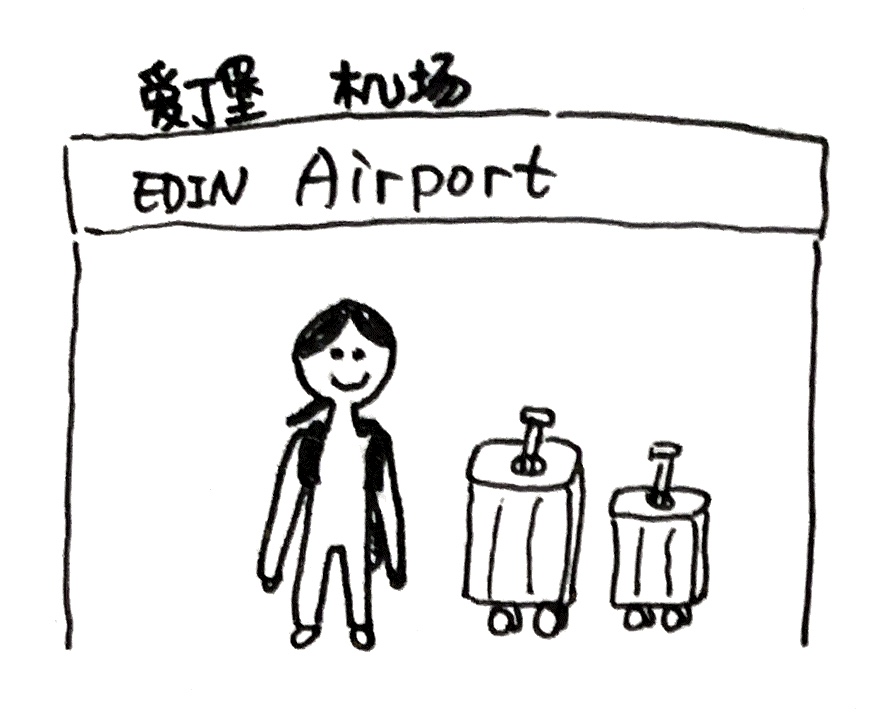 爱丁堡 机场
EDIN Airport